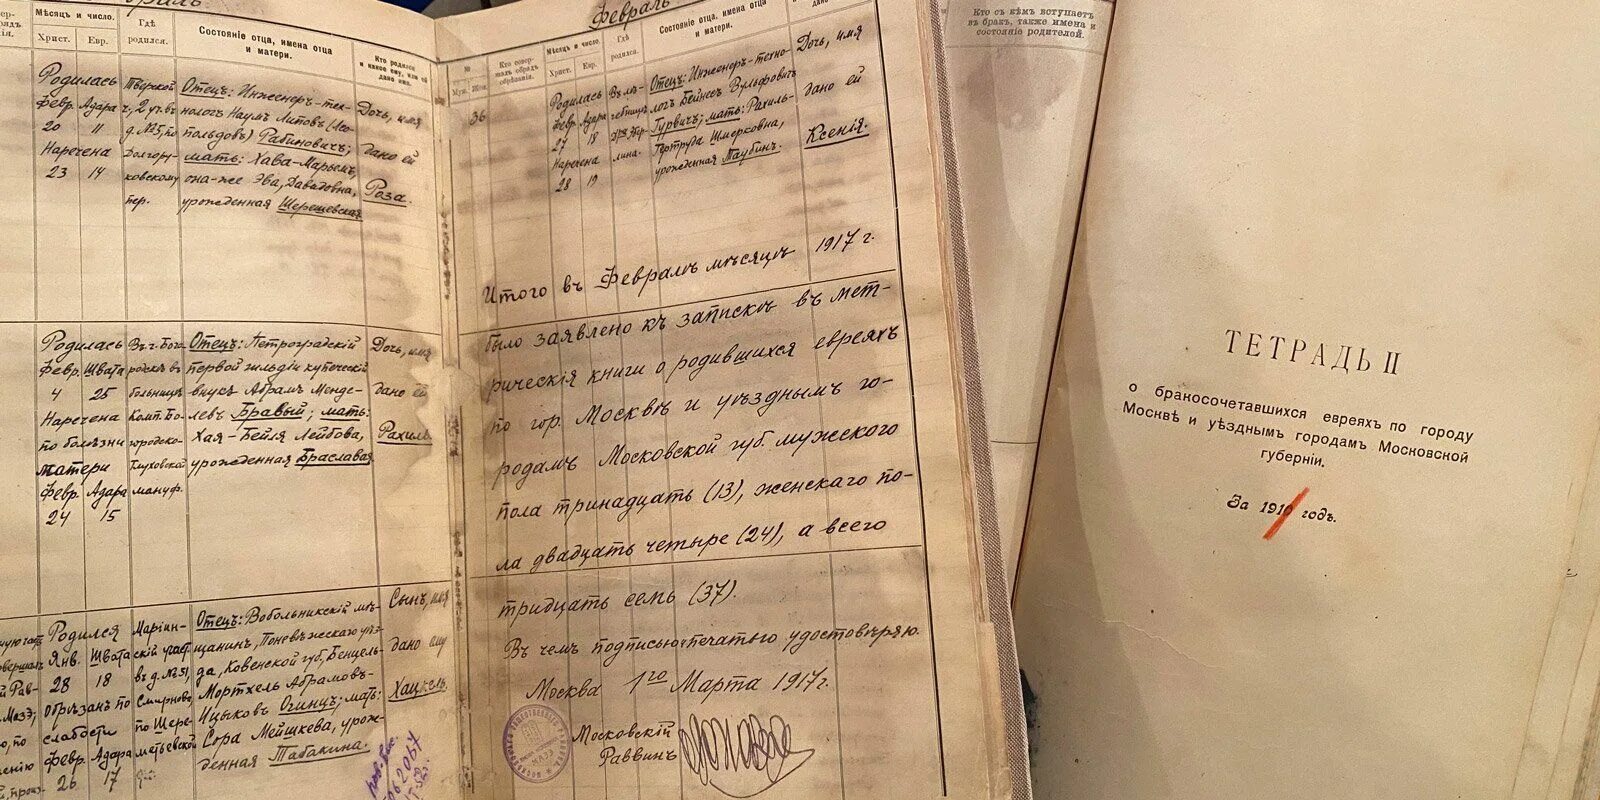 Мѣсяцъ и число.
Христ. Евр.
Гдѣ родился.
Состоянiе отца, имена отца
и матери.
Кто родился
и какое ему, или ей
дано имя.
Родилась
Февр. Адара
20 11
Наречена
23 14
Тверской
ч., 2 уч. въ
д. №25, по
Долгору-
ковскому
пер.
Отецъ: Инженеръ-тех-
нологъ Наумъ Липовъ (Лео-
польдовъ) Рабиновичъ;
мать: Хава-Марьемъ,
она-же Эва, Давидовна,
урожденная Шерешевская
Дочь, имя
дано ей
Роза.
Родилась
Февр. Швата
4 25
Наречена
по болѣзни
матери
Февр. Адара
24 15
Въ г. Бого-
родскѣ въ
больницѣ
Комп. Бо-
городско-
Глуховской
мануф.
Отецъ: Петроградскiй
первой гильдiи купеческiй
внукъ Абрамъ Менде-
левъ Бравый; мать:
Хая-Бейля Лейбова,
урожденная Браславая
Дочь, имя
дано ей
Рахиль
Родился
Янв. Швата
28 18
Обрѣзанъ по
слабости
Февр. Адара
26 17
Марiин-
скiй участ.
въ д. №31,
Смирнова,
по Шере-
метьевской
Отецъ: Вобольникскiй мѣ-
щанинъ, Поневѣжскаго уѣз-
да, Ковенской губ., Бенцель-
Мортхель Абрамовъ-
Ицыковъ Огинцъ; мать:
Сора Мейшкева, урож-
денная Табакина.
Сынъ, имя
дано ему
Хацкель
Февраль
№
Муж. Жен.
Кто совер-
шалъ обрядъ
обрѣзанiя.
Мѣсяцъ и число.
Христ. Евр.
Гдѣ
родился.
Состоянiе отца, имена отца
и матери.
36
Родилась
Февр. Адара
27 18
Наречена
28 19
Въ лѣ-
чебницѣ
д-ра Бер-
лина.
Отецъ: Инженеръ-техно-
логъ Бейнесъ Вульфовичъ
Гурвичъ; мать: Рахиль-
Гертруда Шмерковна,
урожденная Таубинъ.
Дочь, имя
дано ей
Ксенiя.
Итого въ Февралѣ мѣсяцѣ 1917 г.
было заявлено къ запискѣ въ мет-
рическiя книги о родившихся евреяхъ
по гор. Москвѣ и уѣзднымъ го-
родамъ Московской губ. мужского
пола тринадцать (13), женскаго по-
ла двадцать четыре (24), а всего
тридцать семь (37).
Въ чемъ подписью и печатью удостовѣряю.
Москва 1го Марта 1917 г.
Московскiй
Раввинъ
Кто съ кѣмъ вступаетъ
въ бракъ, также имена и
состоянiе родителей.
ТЕТРАДЬ II
о бракосочетавшихся евреяхъ по городу
Москвѣ и уѣзднымъ городамъ Московской
губернiи.
За 1910 годъ.